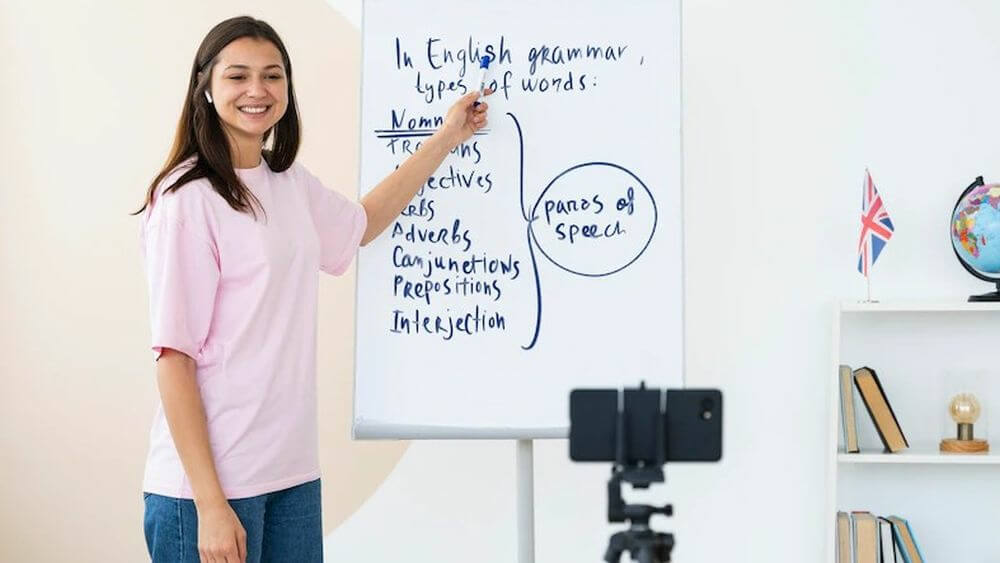 In English grammar,
types of words:
jectives
erbs
Adverbs
Conjunctions
Prepositions
Interjection
of
speech